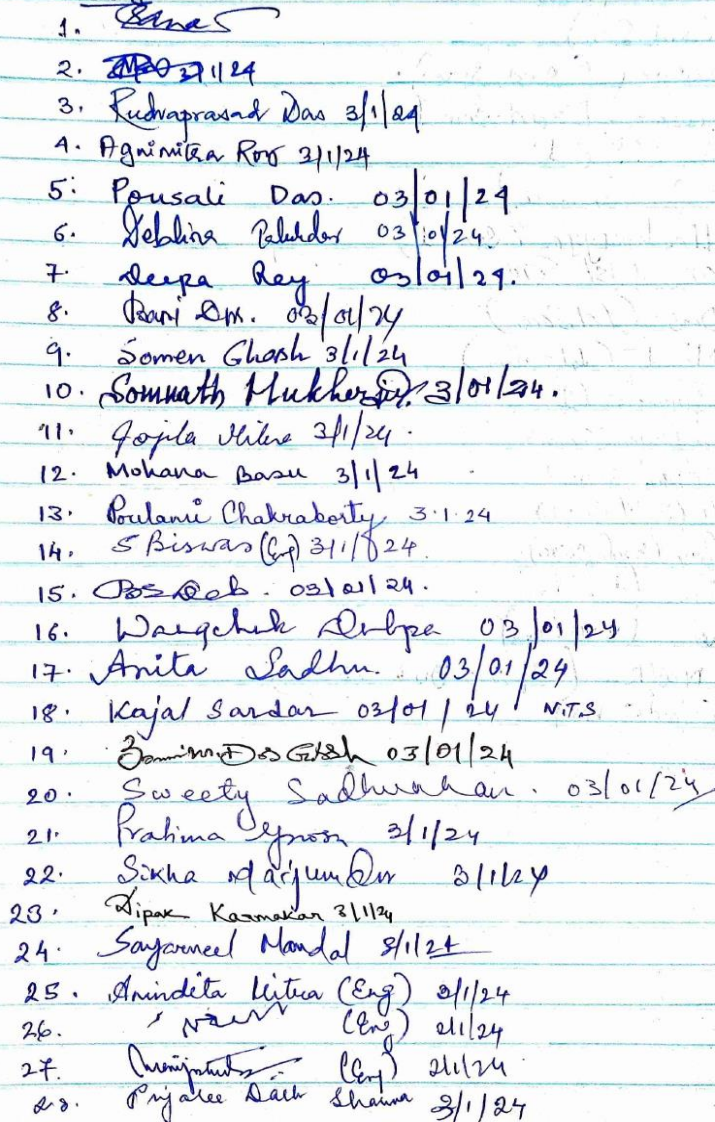 1.
2. 3/1/24
3. Rudraprasad Das 3/1/24
4. Agnimitra Roy 3/1/24
5. Pousali Das. 03/01/24
6. Deblina 03/01/24.
7. Deepa Ray 03/01/24.
8. Rani Das. 03/01/24
9. Somen Ghosh 3/1/24
10. Somnath Mukherjee 3/01/24.
11. 3/1/24.
12. Mohana Basu 3/1/24
13. Poulami Chakraborty 3.1.24
14. S Biswas (Eng) 3/1/24.
15. Deb. 03/01/24.
16. Wangchuk Dukpa 03/01/24
17. Anita Sadhu. 03/01/24
18. Kajal Sardar 03/01/24 N.T.S
19. Das Ghosh 03/01/24
20. Sweety Sadhukhan. 03/01/24
21. Pratima Ghosh 3/1/24
22. Sikha Majumder 3/1/24
23. Dipak Karmakar 3/1/24
24. Sayarneel Mondal 3/1/24
25. Anindita Mitra (Eng) 3/1/24
26. (Eng) 3/1/24
27. (Eng) 3/1/24
28. Sharma 3/1/24